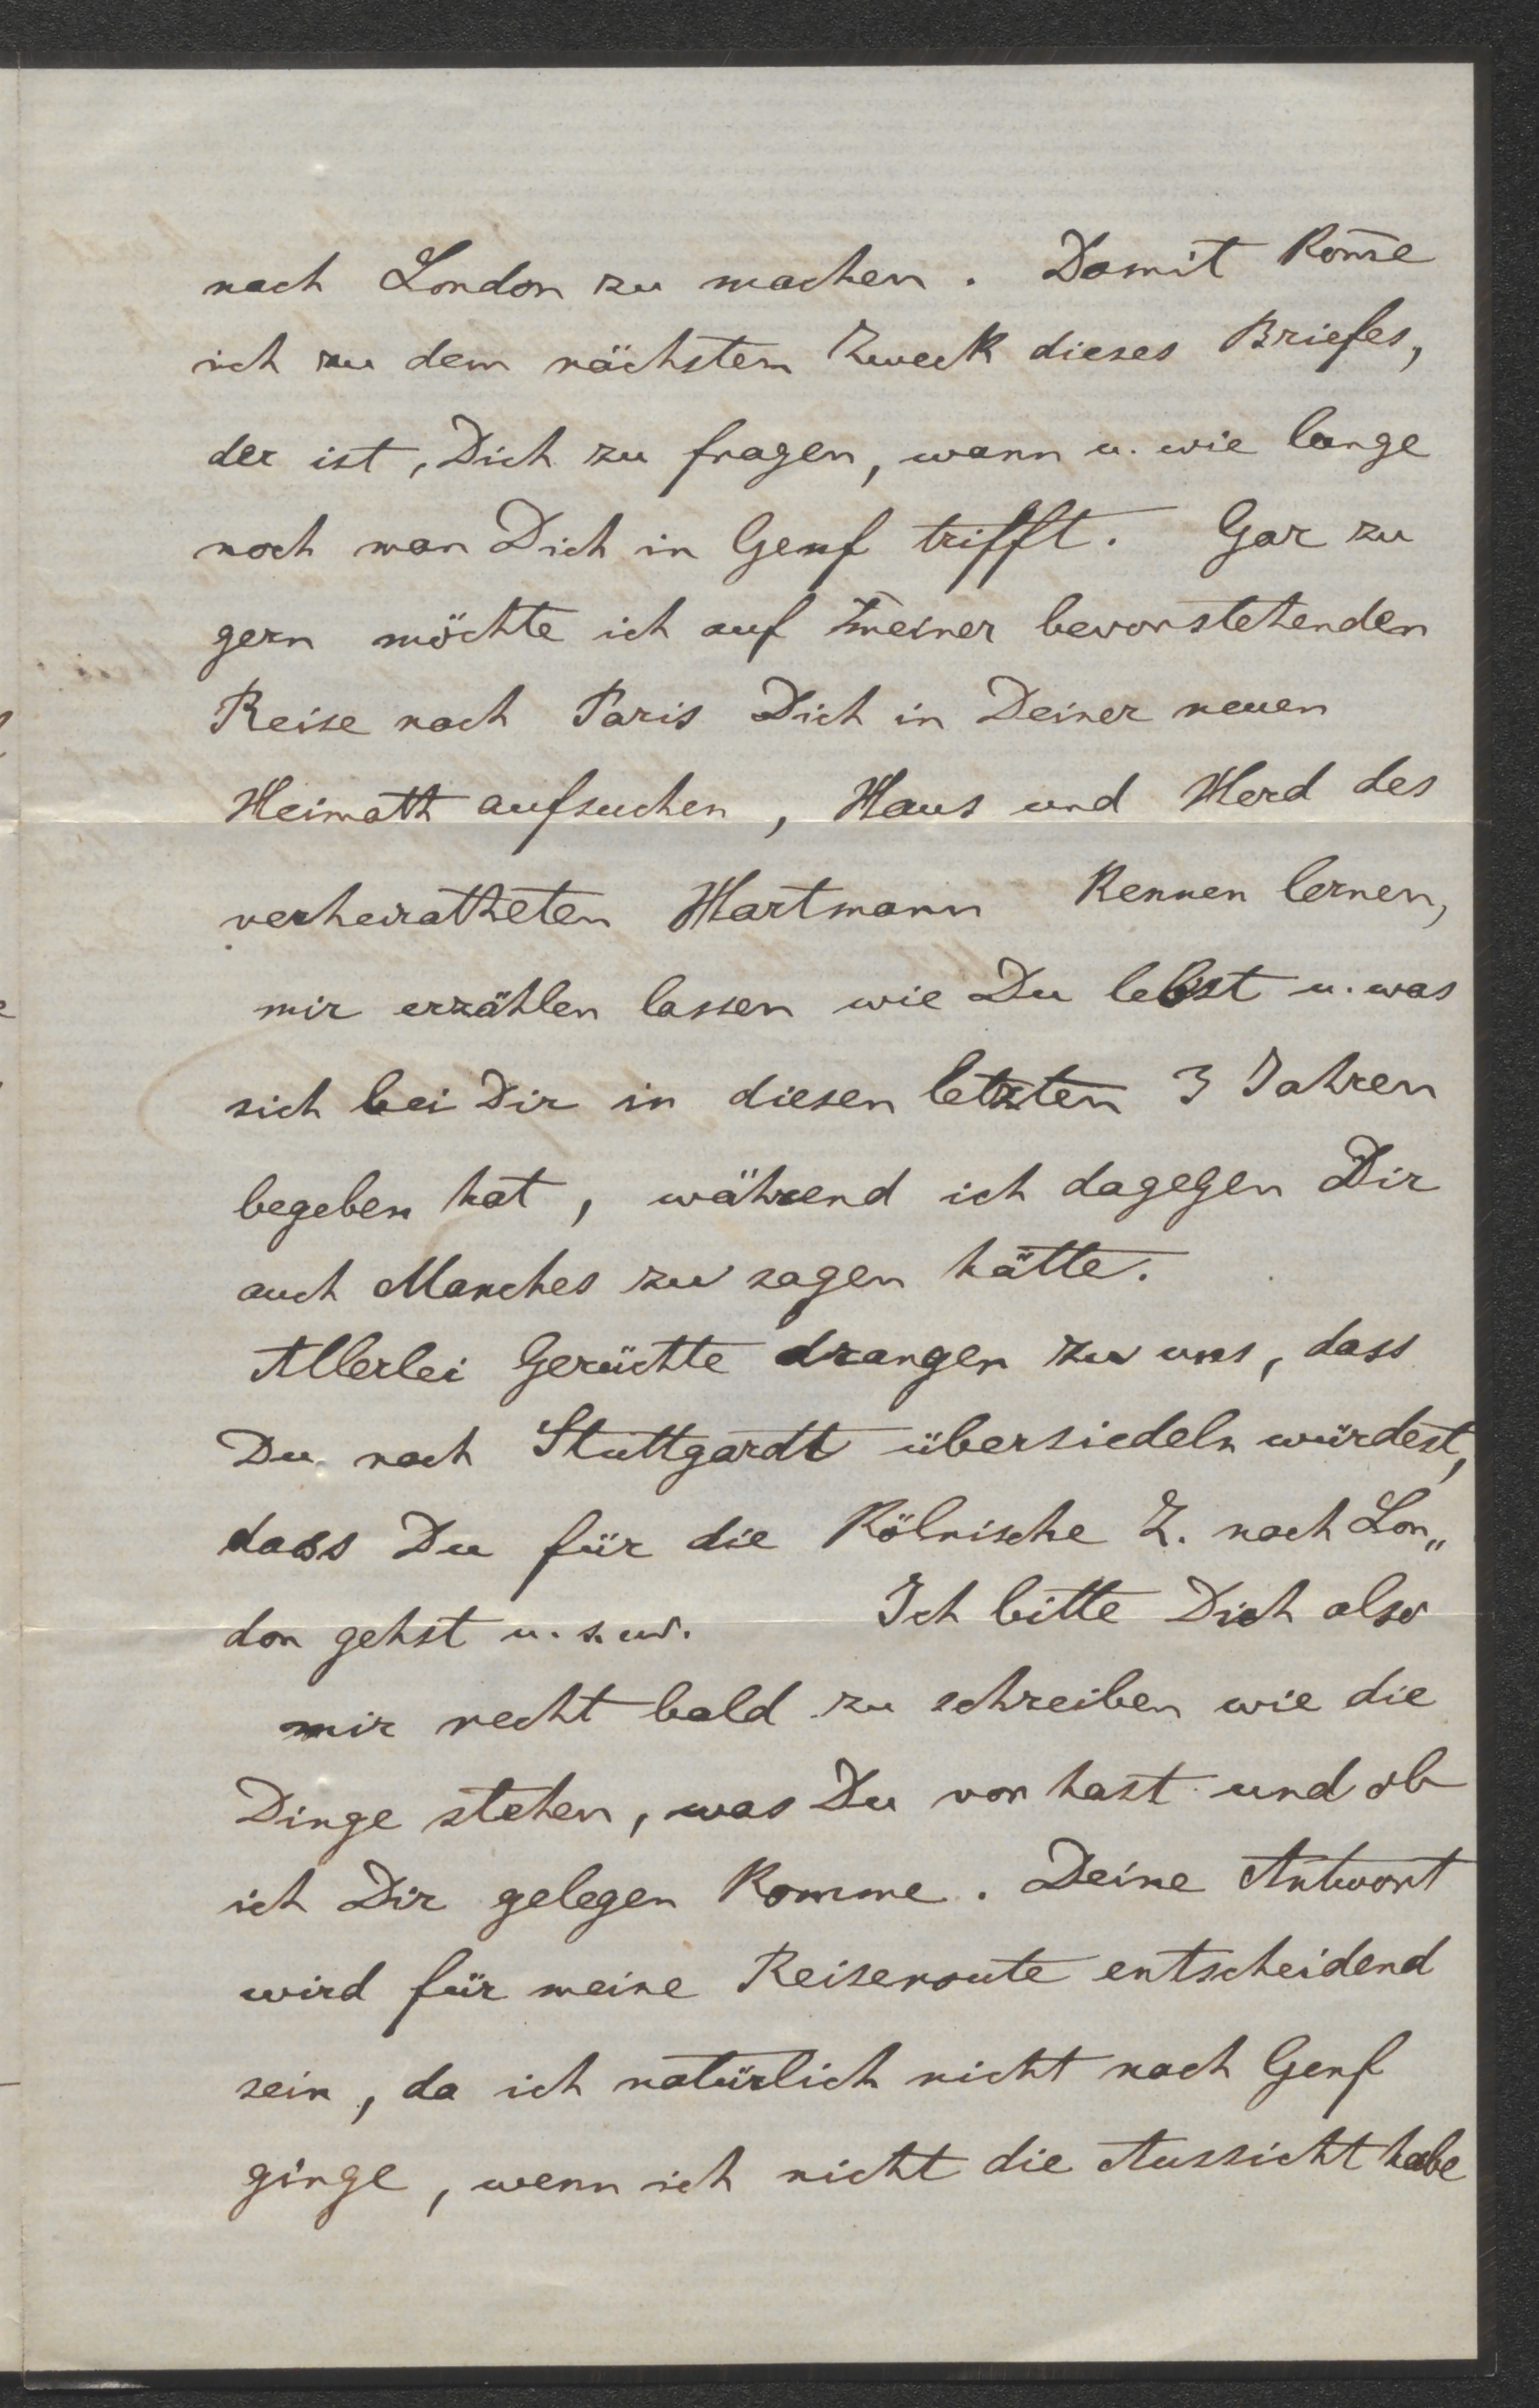 nach London zu machen. Damit kom̄e
ich zu dem nächstem Zweck dieses Briefes,
der ist, Dich zu fragen, wann u. wie lange
noch man Dich in Genf trifft. Gar zu
gern möchte ich auf meiner bevorstehenden
Reise nach Paris Dich in Deiner neuen
Heimath aufsuchen, Haus und Herd des
verheiratheten Hartmann kennen lernen,
mir erzählen lassen wie Du lebst u. was
sich bei Dir in diesen letzten 3 Jahren
begeben hat, während ich dagegen Dir
auch Manches zu sagen hätte.
Allerlei Gerüchte drangen zu uns, dass
Du nach Stuttgardt übersiedeln würdest,
dass Du für die Kölnische Z. nach Lon„
don gehst u. s. w. Ich bitte Dich also
mir recht bald zu schreiben wie die
Dinge stehen, was Du vor hast und ob
ich Dir gelegen komme. Deine Antwort
wird für meine Reiseroute entscheidend
sein, da ich natürlich nicht nach Genf
ginge, wenn ich nicht die Aussicht habe